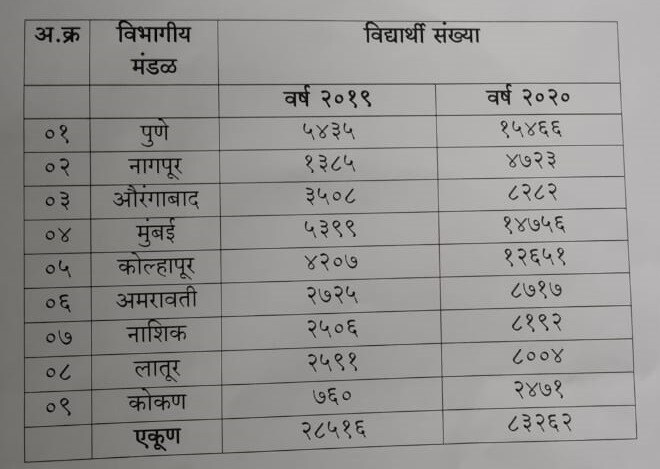 अ.क्र विभागीय मंडळ विद्यार्थी संख्या
वर्ष २०१९ वर्ष २०२०
०१ पुणे ५४३५ १५४६६
०२ नागपूर १३८५ ४७२३
०३ औरंगाबाद ३५०८ ८२८२
०४ मुंबई ५३९९ १४७५६
०५ कोल्हापूर ४२०७ १२६५१
०६ अमरावती २७२५ ८७१७
०७ नाशिक २५०६ ८१९२
०८ लातूर २५९१ ८००४
०९ कोकण ७६० २४७१
एकूण २८५१६ ८३२६२